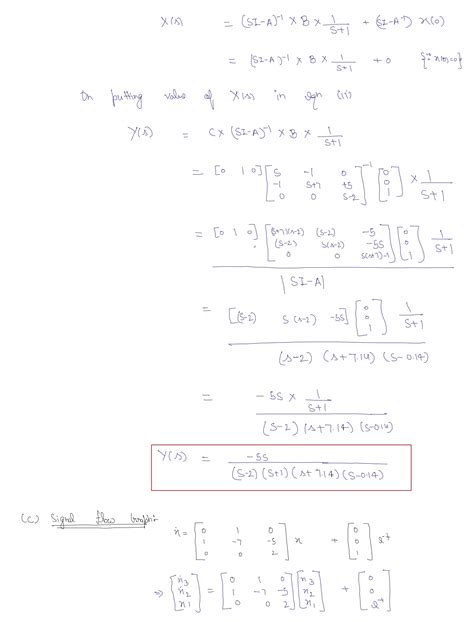 X(s) = (SI-A)⁻¹ × B × 1/(S+1) + (SI-A⁻¹) x(0)
= (SI-A)⁻¹ × B × 1/(S+1) + 0 {∵ x(0)=0}
On putting value of X(s) in eqn (ii)
Y(s) = C × (SI-A)⁻¹ × B × 1/(S+1)
= [0 1 0] [S -1 0; -1 S+7 +5; 0 0 S-2]⁻¹ [0; 0; 1] × 1/(S+1)
= [0 1 0] [(S+7)(s-2) (S-2) -5; (S-2) S(s-2) -5S; 0 0 S(s+7)-1] [0; 0; 1] 1/(S+1)
|SI-A|
= [(S-2) S(s-2) -5S] [0; 0; 1] 1/(S+1)
(s-2) (s+7.14) (s-0.14)
= -5S × 1/(S+1)
(S-2) (s+7.14) (s-0.14)
Y(s) = -5S / (S-2) (S+1) (s+7.14) (S-0.14)
(c) Signal flow Graph:
ẋ = [0 1 0; 1 -7 -5; 0 0 2] x + [0; 0; 1]
⇒ [ẋ3; ẋ2; ẋ1] = [0 1 0; 1 -7 -5; 0 0 2] [x3; x2; x1] + [0; 0;